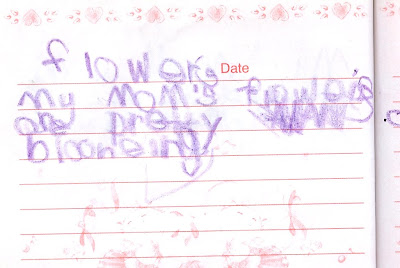 flowers
Date
my MoM's flowers
are pretty
bloomeing